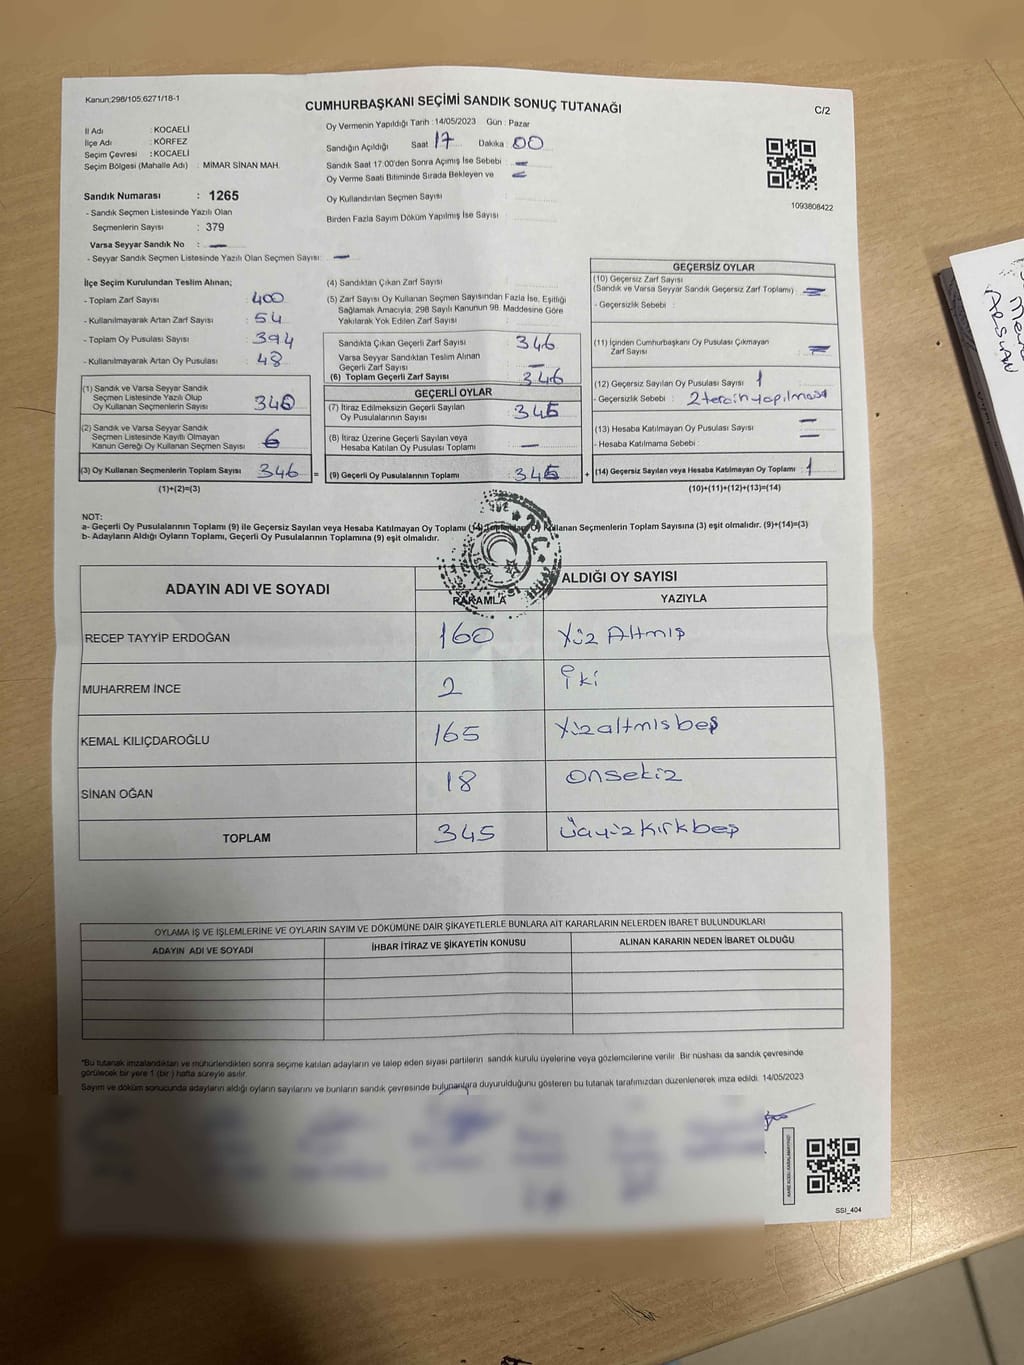 Kanun;298/105.6271/18-1
CUMHURBAŞKANI SEÇİMİ SANDIK SONUÇ TUTANAĞI
C/2
İl Adı : KOCAELİ
İlçe Adı : KÖRFEZ
Seçim Çevresi : KOCAELİ
Seçim Bölgesi (Mahalle Adı) : MİMAR SİNAN MAH.
Oy Vermenin Yapıldığı Tarih : 14/05/2023 Gün : Pazar
Sandığın Açıldığı Saat 17 Dakika : 00
Sandık Saat 17:00'den Sonra Açımış İse Sebebi : –
Oy Verme Saati Bitiminde Sırada Bekleyen ve –
Oy Kullandırılan Seçmen Sayısı :
Birden Fazla Sayım Döküm Yapılmış İse Sayısı :
1093808422
Sandık Numarası : 1265
- Sandık Seçmen Listesinde Yazılı Olan
Seçmenlerin Sayısı : 379
Varsa Seyyar Sandık No : –
- Seyyar Sandık Seçmen Listesinde Yazılı Olan Seçmen Sayısı: –
İlçe Seçim Kurulundan Teslim Alınan;
- Toplam Zarf Sayısı : 400
- Kullanılmayarak Artan Zarf Sayısı : 54
- Toplam Oy Pusulası Sayısı : 394
- Kullanılmayarak Artan Oy Pusulası : 48
(1) Sandık ve Varsa Seyyar Sandık
Seçmen Listesinde Yazılı Olup
Oy Kullanan Seçmenlerin Sayısı :
(2) Sandık ve Varsa Seyyar Sandık
Seçmen Listesinde Kayıtlı Olmayan
Kanun Gereği Oy Kullanan Seçmen Sayısı : 6
(3) Oy Kullanan Seçmenlerin Toplam Sayısı : 346 =
(1)+(2)=(3)
(4) Sandıktan Çıkan Zarf Sayısı :
(5) Zarf Sayısı Oy Kullanan Seçmen Sayısından Fazla İse, Eşitliği
Sağlamak Amacıyla, 298 Sayılı Kanunun 98. Maddesine Göre
Yakılarak Yok Edilen Zarf Sayısı :
Sandıkta Çıkan Geçerli Zarf Sayısı : 346
Varsa Seyyar Sandıktan Teslim Alınan
Geçerli Zarf Sayısı : –
(6) Toplam Geçerli Zarf Sayısı : 346
GEÇERLİ OYLAR
(7) İtiraz Edilmeksizin Geçerli Sayılan
Oy Pusulalarının Sayısı : 345
(8) İtiraz Üzerine Geçerli Sayılan veya
Hesaba Katılan Oy Pusulası Toplamı : –
(9) Geçerli Oy Pusulalarının Toplamı : 345 +
GEÇERSİZ OYLAR
(10) Geçersiz Zarf Sayısı
(Sandık ve Varsa Seyyar Sandık Geçersiz Zarf Toplamı) : –
- Geçersizlik Sebebi :
(11) İçinden Cumhurbaşkanı Oy Pusulası Çıkmayan
Zarf Sayısı : –
(12) Geçersiz Sayılan Oy Pusulası Sayısı : 1
- Geçersizlik Sebebi : 2 tercih yapılması
(13) Hesaba Katılmayan Oy Pusulası Sayısı : –
- Hesaba Katılmama Sebebi : –
(14) Geçersiz Sayılan veya Hesaba Katılmayan Oy Toplamı : 1
(10)+(11)+(12)+(13)=(14)
NOT:
a- Geçerli Oy Pusulalarının Toplamı (9) ile Geçersiz Sayılan veya Hesaba Katılmayan Oy Toplamı (14) Toplamları, Oy Kullanan Seçmenlerin Toplam Sayısına (3) eşit olmalıdır. (9)+(14)=(3)
b- Adayların Aldığı Oyların Toplamı, Geçerli Oy Pusulalarının Toplamına (9) eşit olmalıdır.
ADAYIN ADI VE SOYADI
ALDIĞI OY SAYISI
RAKAMLA
YAZIYLA
RECEP TAYYİP ERDOĞAN 160 Yüz Altmış
MUHARREM İNCE 2 İki
KEMAL KILIÇDAROĞLU 165 Yüzaltmışbeş
SİNAN OĞAN 18 onsekiz
TOPLAM 345 Üçyüzkırkbeş
OYLAMA İŞ VE İŞLEMLERİNE VE OYLARIN SAYIM VE DÖKÜMÜNE DAİR ŞİKAYETLERLE BUNLARA AİT KARARLARIN NELERDEN İBARET BULUNDUKLARI
ADAYIN ADI VE SOYADI
İHBAR İTİRAZ VE ŞİKAYETİN KONUSU
ALINAN KARARIN NEDEN İBARET OLDUĞU
*Bu tutanak imzalandıktan ve mühürlendikten sonra seçime katılan adayların ve talep eden siyasi partilerin sandık kurulu üyelerine veya gözlemcilerine verilir. Bir nüshası da sandık çevresinde
görülecek bir yere 1 (bir ) hafta süreyle asılır.
Sayım ve döküm sonucunda adayların aldığı oyların sayılarını ve bunların sandık çevresinde bulunanlara duyurulduğunu gösteren bu tutanak tarafımızdan düzenlenerek imza edildi. 14/05/2023
KARE KODU KARALAMAYINIZ!
SSI_404
ARSLAN